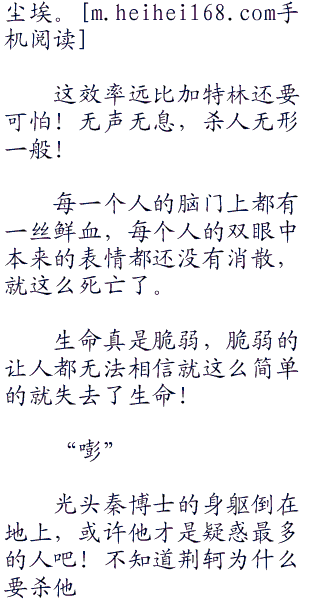 尘埃。[m.heihei168.com手
机阅读]
这效率远比加特林还要
可怕！无声无息，杀人无形
一般！
每一个人的脑门上都有
一丝鲜血，每个人的双眼中
本来的表情都还没有消散，
就这么死亡了。
生命真是脆弱，脆弱的
让人都无法相信就这么简单
的就失去了生命！
“嘭”
光头秦博士的身躯倒在
地上，或许他才是疑惑最多
的人吧！不知道荆轲为什么
要杀他